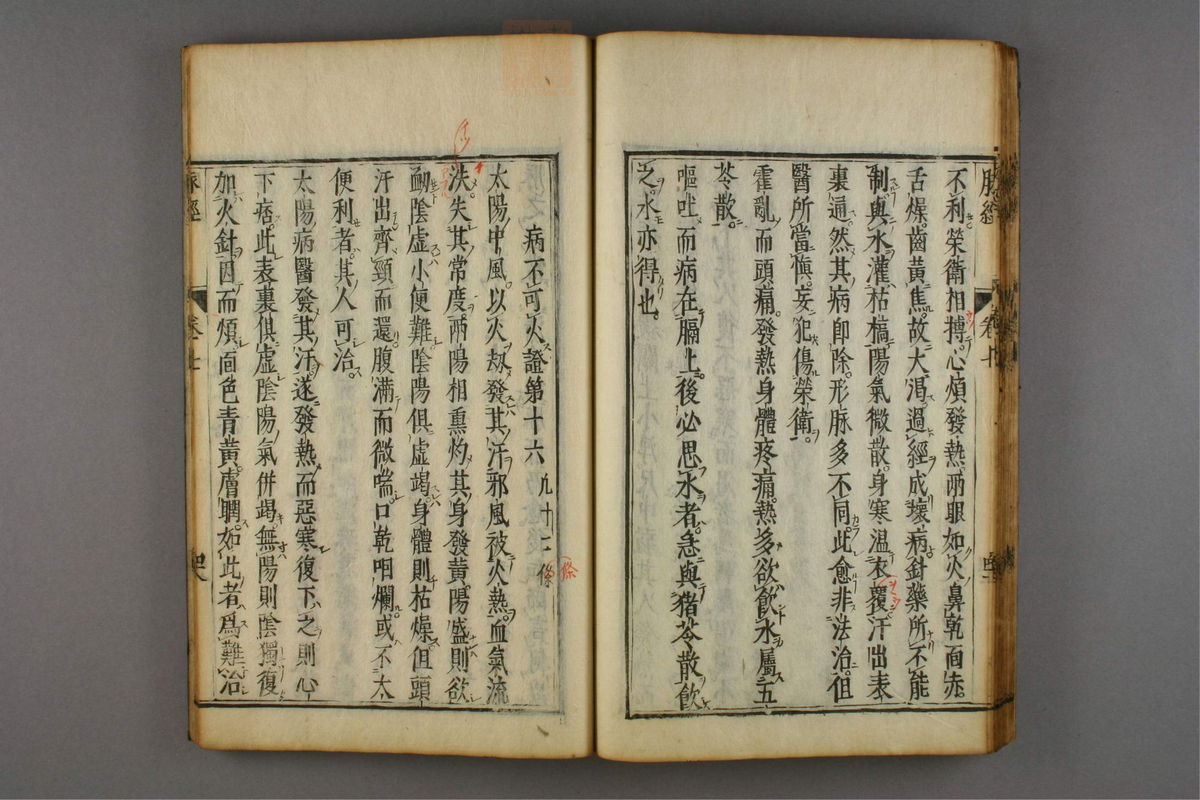 脉經 卷七
不利榮衛相搏心煩發熱兩眼如火鼻乾面赤
舌燥齒黃焦故大渴過經成壞病針藥所不能
制與水灌枯槁陽氣微散身寒溫衣覆汗出表
裏通然其病卽除形脉多不同此愈非法治但
醫所當愼妄犯傷榮衛
霍亂而頭痛發熱身體疼痛熱多欲飮水屬五
苓散
嘔吐而病在膈上後必思水者急與猪苓散飮
之水亦得也
病不可火證第十六
太陽中風以火劫發其汗邪風被火熱血氣流
泆失其常度兩陽相熏灼其身發黃陽盛則欲
衂陰虛小便難陰陽俱虛竭身體則枯燥但頭
汗出齊頸而還腹滿而微喘口乾咽爛或不大
便利者其人可治
太陽病醫發其汗遂發熱而惡寒復下之則心
下痞此表裏俱虛陰陽氣併竭無陽則陰獨復
加火針因而煩面色青黃膚瞤如此者爲難治
脉經 卷七